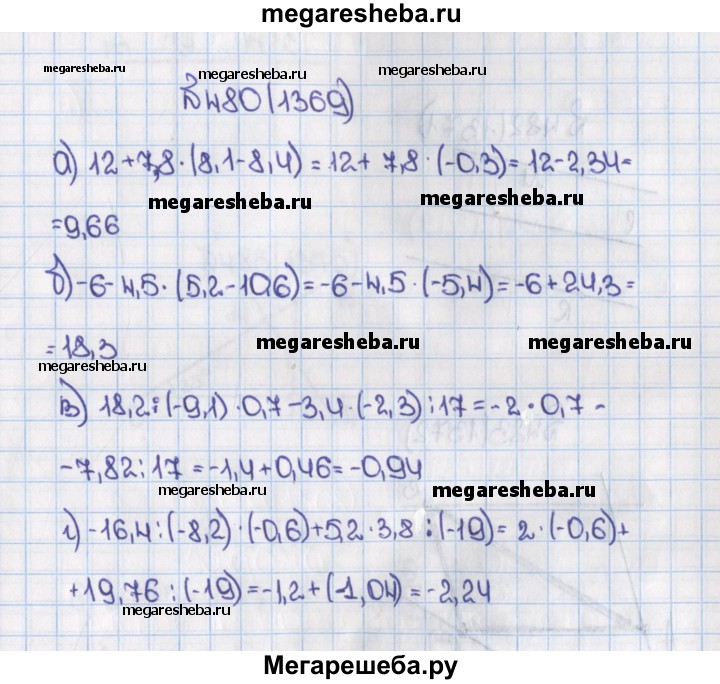 megaresheba.ru
megaresheba.ru megaresheba.ru megaresheba.ru
№480(1369)
а) 12+7,8·(8,1-8,4)=12+7,8·(-0,3)=12-2,34=
megaresheba.ru megaresheba.ru
=9,66
б)-6-4,5·(5,2-10,6)=-6-4,5·(-5,4)=-6+24,3=
=18,3 megaresheba.ru megaresheba.ru
megaresheba.ru
в) 18,2:(-9,1)·0,7-3,4·(-2,3):17=-2·0,7-
-7,82:17=-1,4+0,46=-0,94
megaresheba.ru megaresheba.ru
г)-16,4:(-8,2)·(-0,6)+5,2·3,8:(-19)=2·(-0,6)+
+19,76:(-19)=-1,2+(-1,04)=-2,24
megaresheba.ru megaresheba.ru
Мегарешеба.ру